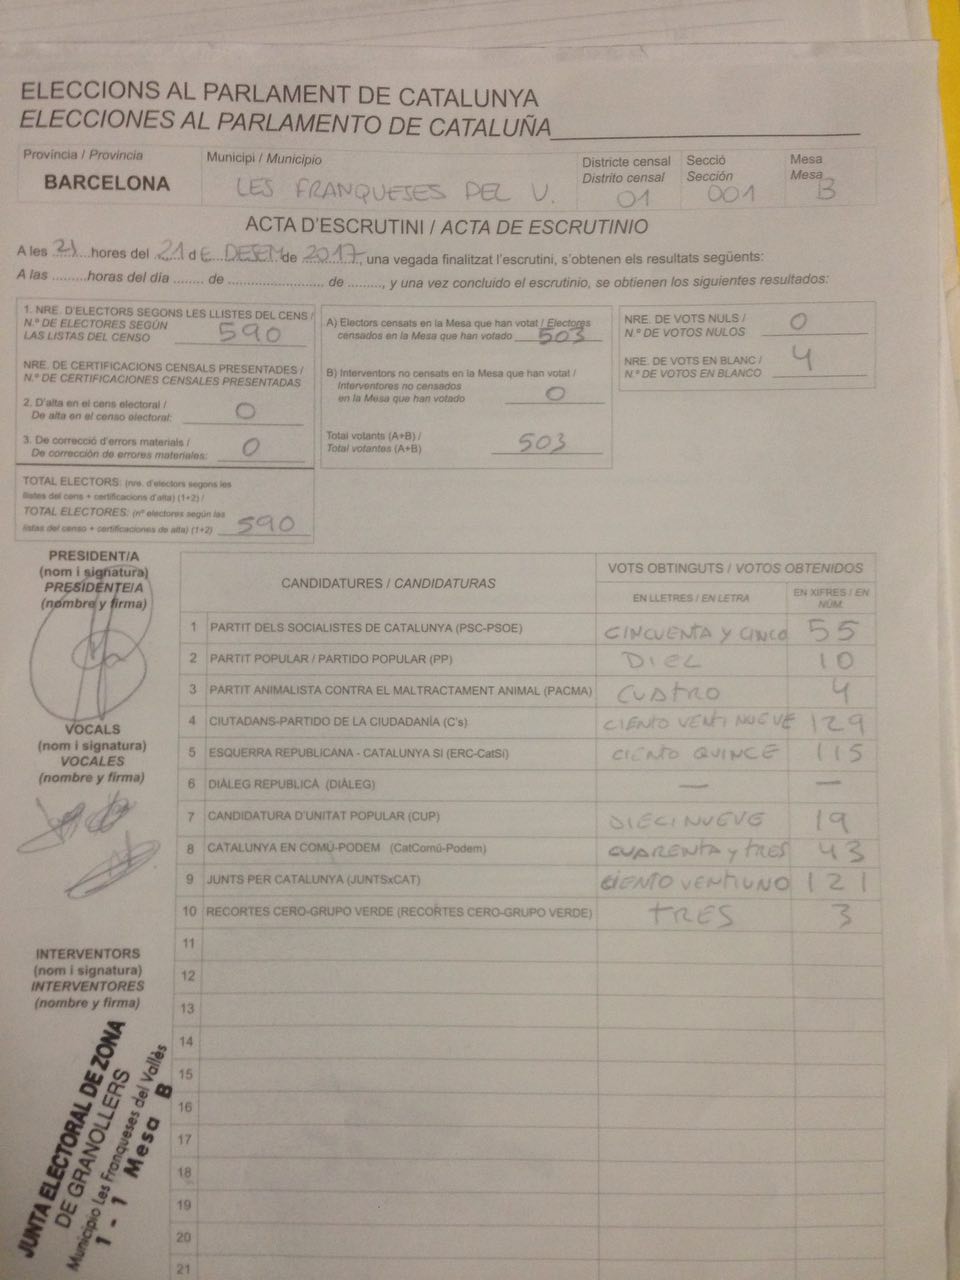 ELECCIONS AL PARLAMENT DE CATALUNYA
ELECCIONES AL PARLAMENTO DE CATALUÑA
Província / Provincia
BARCELONA
Municipi / Municipio
LES FRANQUESES DEL V.
Districte censal
Distrito censal
01
Secció
Sección
001
Mesa
Mesa
B
ACTA D'ESCRUTINI / ACTA DE ESCRUTINIO
A les 21 hores del 21 d E DESEM de 2017, una vegada finalitzat l'escrutini, s'obtenen els resultats següents:
A las .........horas del día ........ de ........................ de ........, y una vez concluido el escrutinio, se obtienen los siguientes resultados:
1. NRE. D'ELECTORS SEGONS LES LLISTES DEL CENS /
N.º DE ELECTORES SEGÚN
LAS LISTAS DEL CENSO 590
NRE. DE CERTIFICACIONS CENSALS PRESENTADES /
N.º DE CERTIFICACIONES CENSALES PRESENTADAS
2. D'alta en el cens electoral /
De alta en el censo electoral: 0
3. De correcció d'errors materials /
De corrección de errores materiales: 0
TOTAL ELECTORS: (nre. d'electors segons les
llistes del cens + certificacions d'alta) (1+2) /
TOTAL ELECTORES: (nº electores según las
listas del censo + certificaciones de alta) (1+2) 590
A) Electors censats en la Mesa que han votat / Electores
censados en la Mesa que han votado 503
B) Interventors no censats en la Mesa que han votat /
Interventores no censados
en la Mesa que han votado 0
Total votants (A+B) /
Total votantes (A+B) 503
NRE. DE VOTS NULS /
N.º DE VOTOS NULOS 0
NRE. DE VOTS EN BLANC /
N.º DE VOTOS EN BLANCO 4
PRESIDENT/A
(nom i signatura)
PRESIDENTE/A
(nombre y firma)
VOCALS
(nom i signatura)
VOCALES
(nombre y firma)
INTERVENTORS
(nom i signatura)
INTERVENTORES
(nombre y firma)
JUNTA ELECTORAL DE ZONA
DE GRANOLLERS
Municipio Les Franqueses del Vallès
1 - 1 Mesa B
CANDIDATURES / CANDIDATURAS
VOTS OBTINGUTS / VOTOS OBTENIDOS
EN LLETRES / EN LETRA
EN XIFRES / EN
NÚM.
1 PARTIT DELS SOCIALISTES DE CATALUNYA (PSC-PSOE) CINCUENTA Y CINCO 55
2 PARTIT POPULAR / PARTIDO POPULAR (PP) DIEZ 10
3 PARTIT ANIMALISTA CONTRA EL MALTRACTAMENT ANIMAL (PACMA) CUATRO 4
4 CIUTADANS-PARTIDO DE LA CIUDADANÍA (C's) CIENTO VENTI NUEVE 129
5 ESQUERRA REPUBLICANA - CATALUNYA SI (ERC-CatSí) CIENTO QUINCE 115
6 DIÀLEG REPUBLICÀ (DIÀLEG) — —
7 CANDIDATURA D'UNITAT POPULAR (CUP) DIECINUEVE 19
8 CATALUNYA EN COMÚ-PODEM (CatComú-Podem) CUARENTA Y TRES 43
9 JUNTS PER CATALUNYA (JUNTSxCAT) CIENTO VENTIUNO 121
10 RECORTES CERO-GRUPO VERDE (RECORTES CERO-GRUPO VERDE) TRES 3
11
12
13
14
15
16
17
18
19
20
21